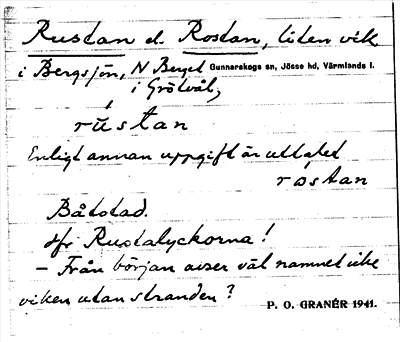 Rustan el. Rostan, liten vik
i Bergsjön, N Berget Gunnarskogs sn, Jösse hd, Värmlands l.
i Grötvål,
rustan
Enligt annan uppgift är uttalet
røstan
Båtstad.
Jfr Rustalyckorna!
– Från början avser väl namnet icke
viken utan stranden?
P. O. GRANÉR 1941.